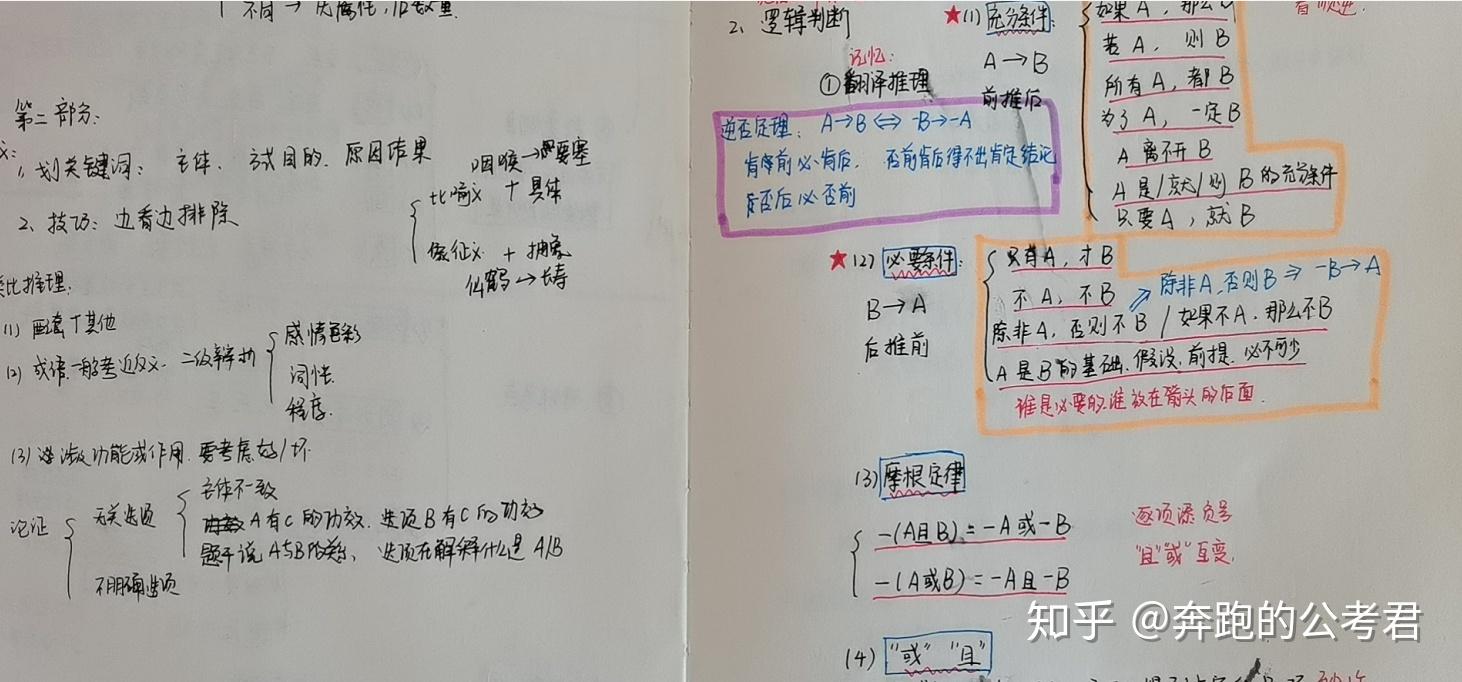 不同 → 看属性,比数量
第二部分:
1、划关键词: 主体、方式目的、原因结果
2、技巧: 边看边排除
咽喉→要塞
比喻义 + 具体
象征义 + 抽象
仙鹤→长寿
类比推理.
(1) 配套 其他
(2) 成语一般考近反义. 二级辨析
感情色彩
词性
程度.
(3) 涉及功能或作用. 要考虑好/坏
论证
无关选项
主体不一致
A有C的功效. 选项B有C的功效
题干说A与B的差, 选项在解释什么是A/B
不明确选项
2、逻辑判断
记忆:
①翻译推理
逆否定理: A→B ⇔ -B→-A
肯前必肯后, 否前肯后得不出肯定结论
否后必否前
★(1) 充分条件:
A→B
前推后
如果A, 那么B
若A, 则B
所有A, 都B
为了A, 一定B
A离不开B
A是/就/则B的充分条件
只要A, 就B
★(2) 必要条件:
B→A
后推前
只有A, 才B
不A, 不B
除非A,否则B ⇒ -B→A
除非A, 否则不B / 如果不A, 那么不B
A是B的基础、假设、前提、必不可少
谁是必要的谁放在箭头的后面.
(3) 摩根定律
-(A且B) = -A或-B
-(A或B) = -A且-B
逐项添负号
"且""或"互变.
(4) "或" "且"
知乎 @奔跑的公考君